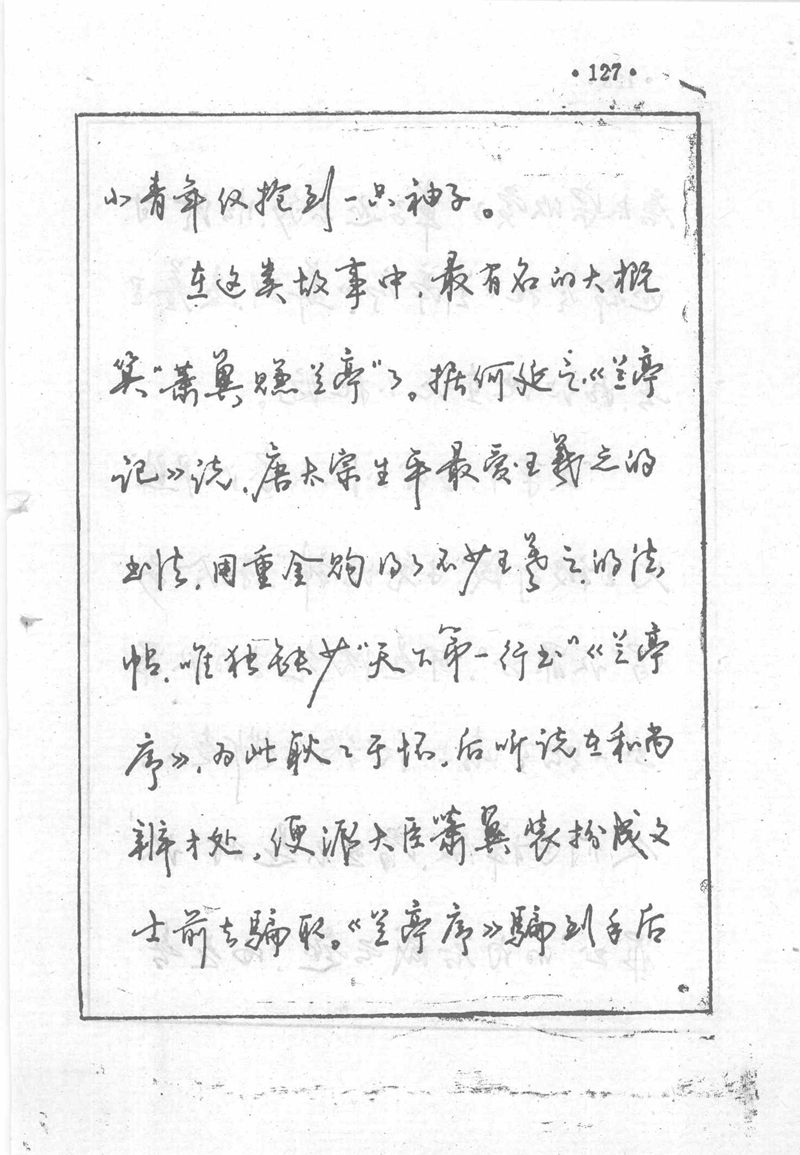 ·127·
小青年仅抢到一只袖子。
在这类故事中，最有名的大概
算“萧翼赚兰亭”了。据何延之《兰亭
记》说，唐太宗生平最爱王羲之的
书法，用重金购的了不少王羲之的法
帖，唯独缺少“天下第一行书”《兰亭
序》，为此耿々于怀，后听说在和尚
辨才处，便派大臣萧翼装扮成文
士前去骗取。《兰亭序》骗到手后